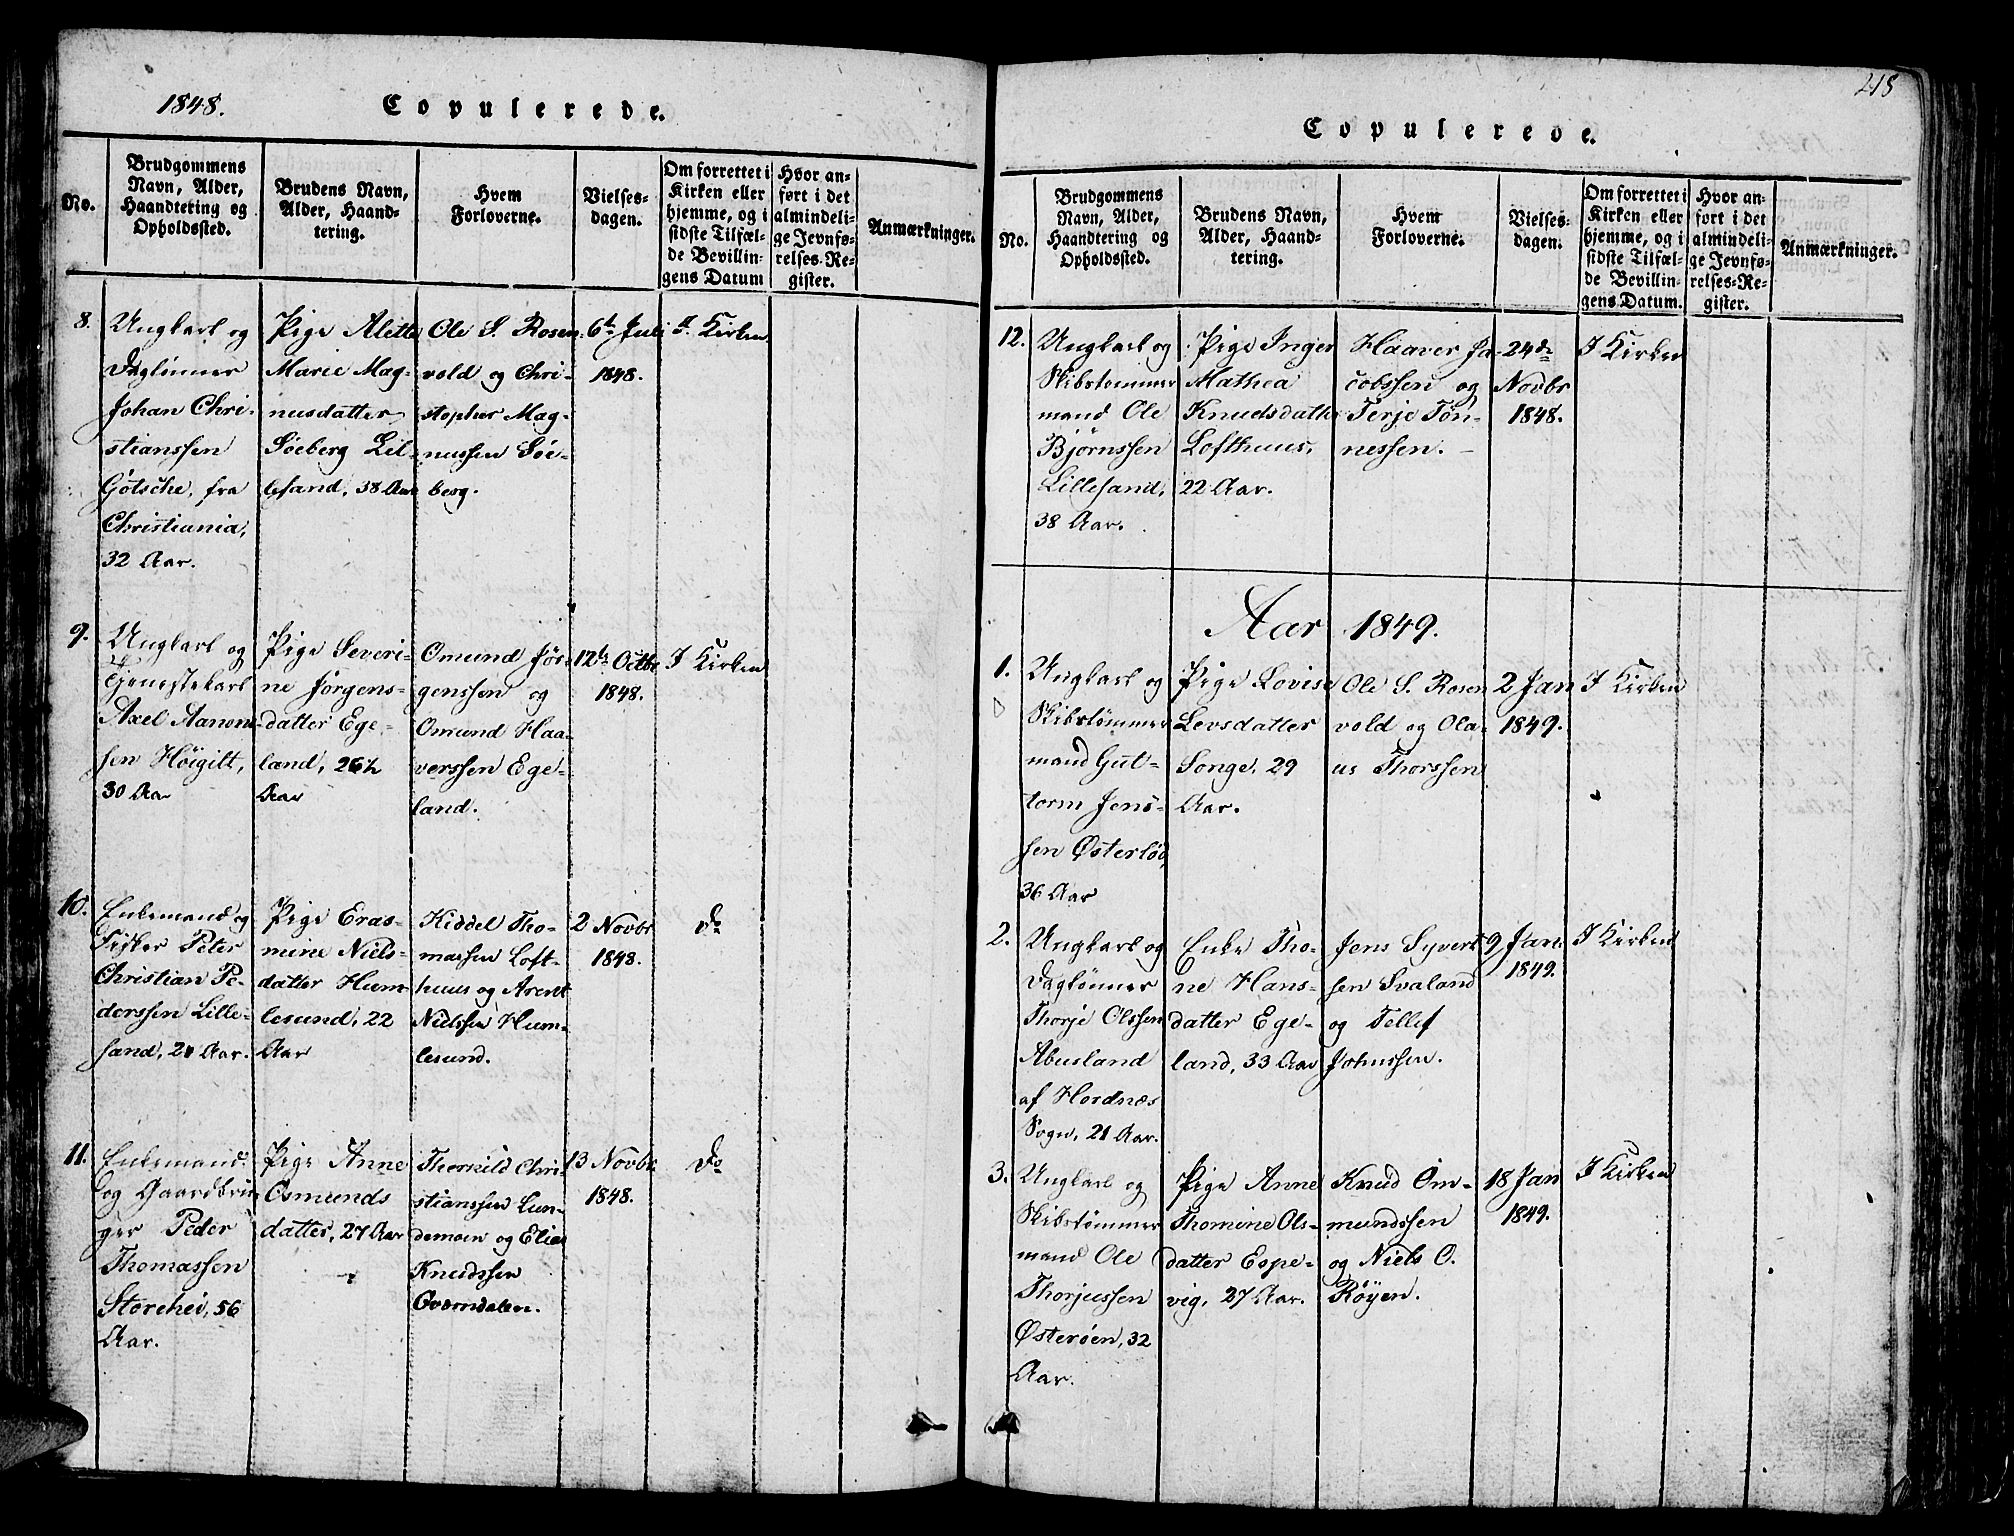 1848.
Copulerede.
No.
Brudgommens
Navn, Alder,
Haandtering og
Opholdssted.
Brudens Navn,
Alder, Haand-
tering.
Hvem
Forloverne.
Vielses-
dagen.
Om forrettet i
Kirken eller
hjemme, og i
sidste Tilfæl-
de Bevillin-
gens Datum
Hvor an-
ført i det
almindeli-
ge Jevnfø-
relses-Re-
gister.
Anmærkninger.
8.
Ungkarl og
Daglønner
Johan Chri-
stianssen
Götsche, fra
Christiania,
32 Aar.
Pige Alette
Marie Mag-
nusdatter
Søeberg Lil-
lesand, 38 Aar
Ole S. Rosen-
vold og Chri-
stopher Mag-
nussen Søe-
berg.
6te Juli
1848.
I Kirken
9.
Ungkarl og
Tjenestekarl
Axel Aanon-
sen Høigilt,
30 Aar
Pige Severi-
ne Jørgens-
datter Ege-
land, 26½
Aar
Omund Jør-
genssen og
Omund Haa-
verssen Ege-
land.
12te Octbr
1848.
I Kirken
10.
Enkemand og
Fisker Peter
Christian Pe-
derssen Lille-
sand, 21 Aar.
Pige Eras-
mine Niels-
datter Hum-
lesund, 22
Aar
Kiddel Tho-
massen Loft-
huus og Arent
Nielssen Hum-
lesund.
2 Novbr
1848.
Do
11.
Enkemand
og Gaardbru-
ger Peder
Thomassen
Storehei, 56
Aar.
Pige Anne
Osmunds
datter, 27 Aar
Thorkild Chri-
stianssen Lun-
demoen og Elias
Knudssen
Qværndalen.
13 Novbr
1848.
Do
218
Copulerede.
No.
Brudgommens
Navn, Alder,
Haandtering og
Opholdssted.
Brudens Navn,
Alder, Haand-
tering.
Hvem
Forloverne.
Vielses-
dagen.
Om forrettet i
Kirken eller
hjemme, og i
sidste Tilfæl-
de Bevillin-
gens Datum.
Hvor an-
ført i det
almindeli-
ge Jevnfø-
relses-Re-
gister.
Anmærkninger.
12.
Ungkarl og
Skibstømmer
mand Ole
Bjørnssen
Lillesand,
38 Aar.
Pige Inger
Mathea
Knudsdatter
Lofthuus,
22 Aar.
Haaver Ja-
cobssen og
Terje Tøn-
nessen.
24de
Novbr
1848.
I Kirken
Aar 1849.
1.
Ungkarl og
Skibstømmer
mand Gut-
torm Jens-
sen Østerlød,
36 Aar
Pige Lovise
Levsdatter
Songe, 29
Aar.
Ole S. Rosen
vold og Ola-
us Thorssen
2 Jan
1849.
I Kirken
2.
Ungkarl og
Daglønner
Thorje Olssen
Abusland
af Hordnæs
Sogn, 21 Aar.
Enke Tho-
ne Hans-
datter Ege-
land, 33 Aar
Jens Syvert-
sen Svaland
og Tellef
Johnssen.
9 Jan
1849.
I Kirken
3.
Ungkarl og
Skibstømmer
mand Ole
Thorjussen
Østerøen, 32
Aar.
Pige Anne
Thomine Ols-
datter Espe-
vig, 27 Aar.
Knud Om-
mundssen
og Niels O.
Røyen.
18 Jan
1849.
I Kirken